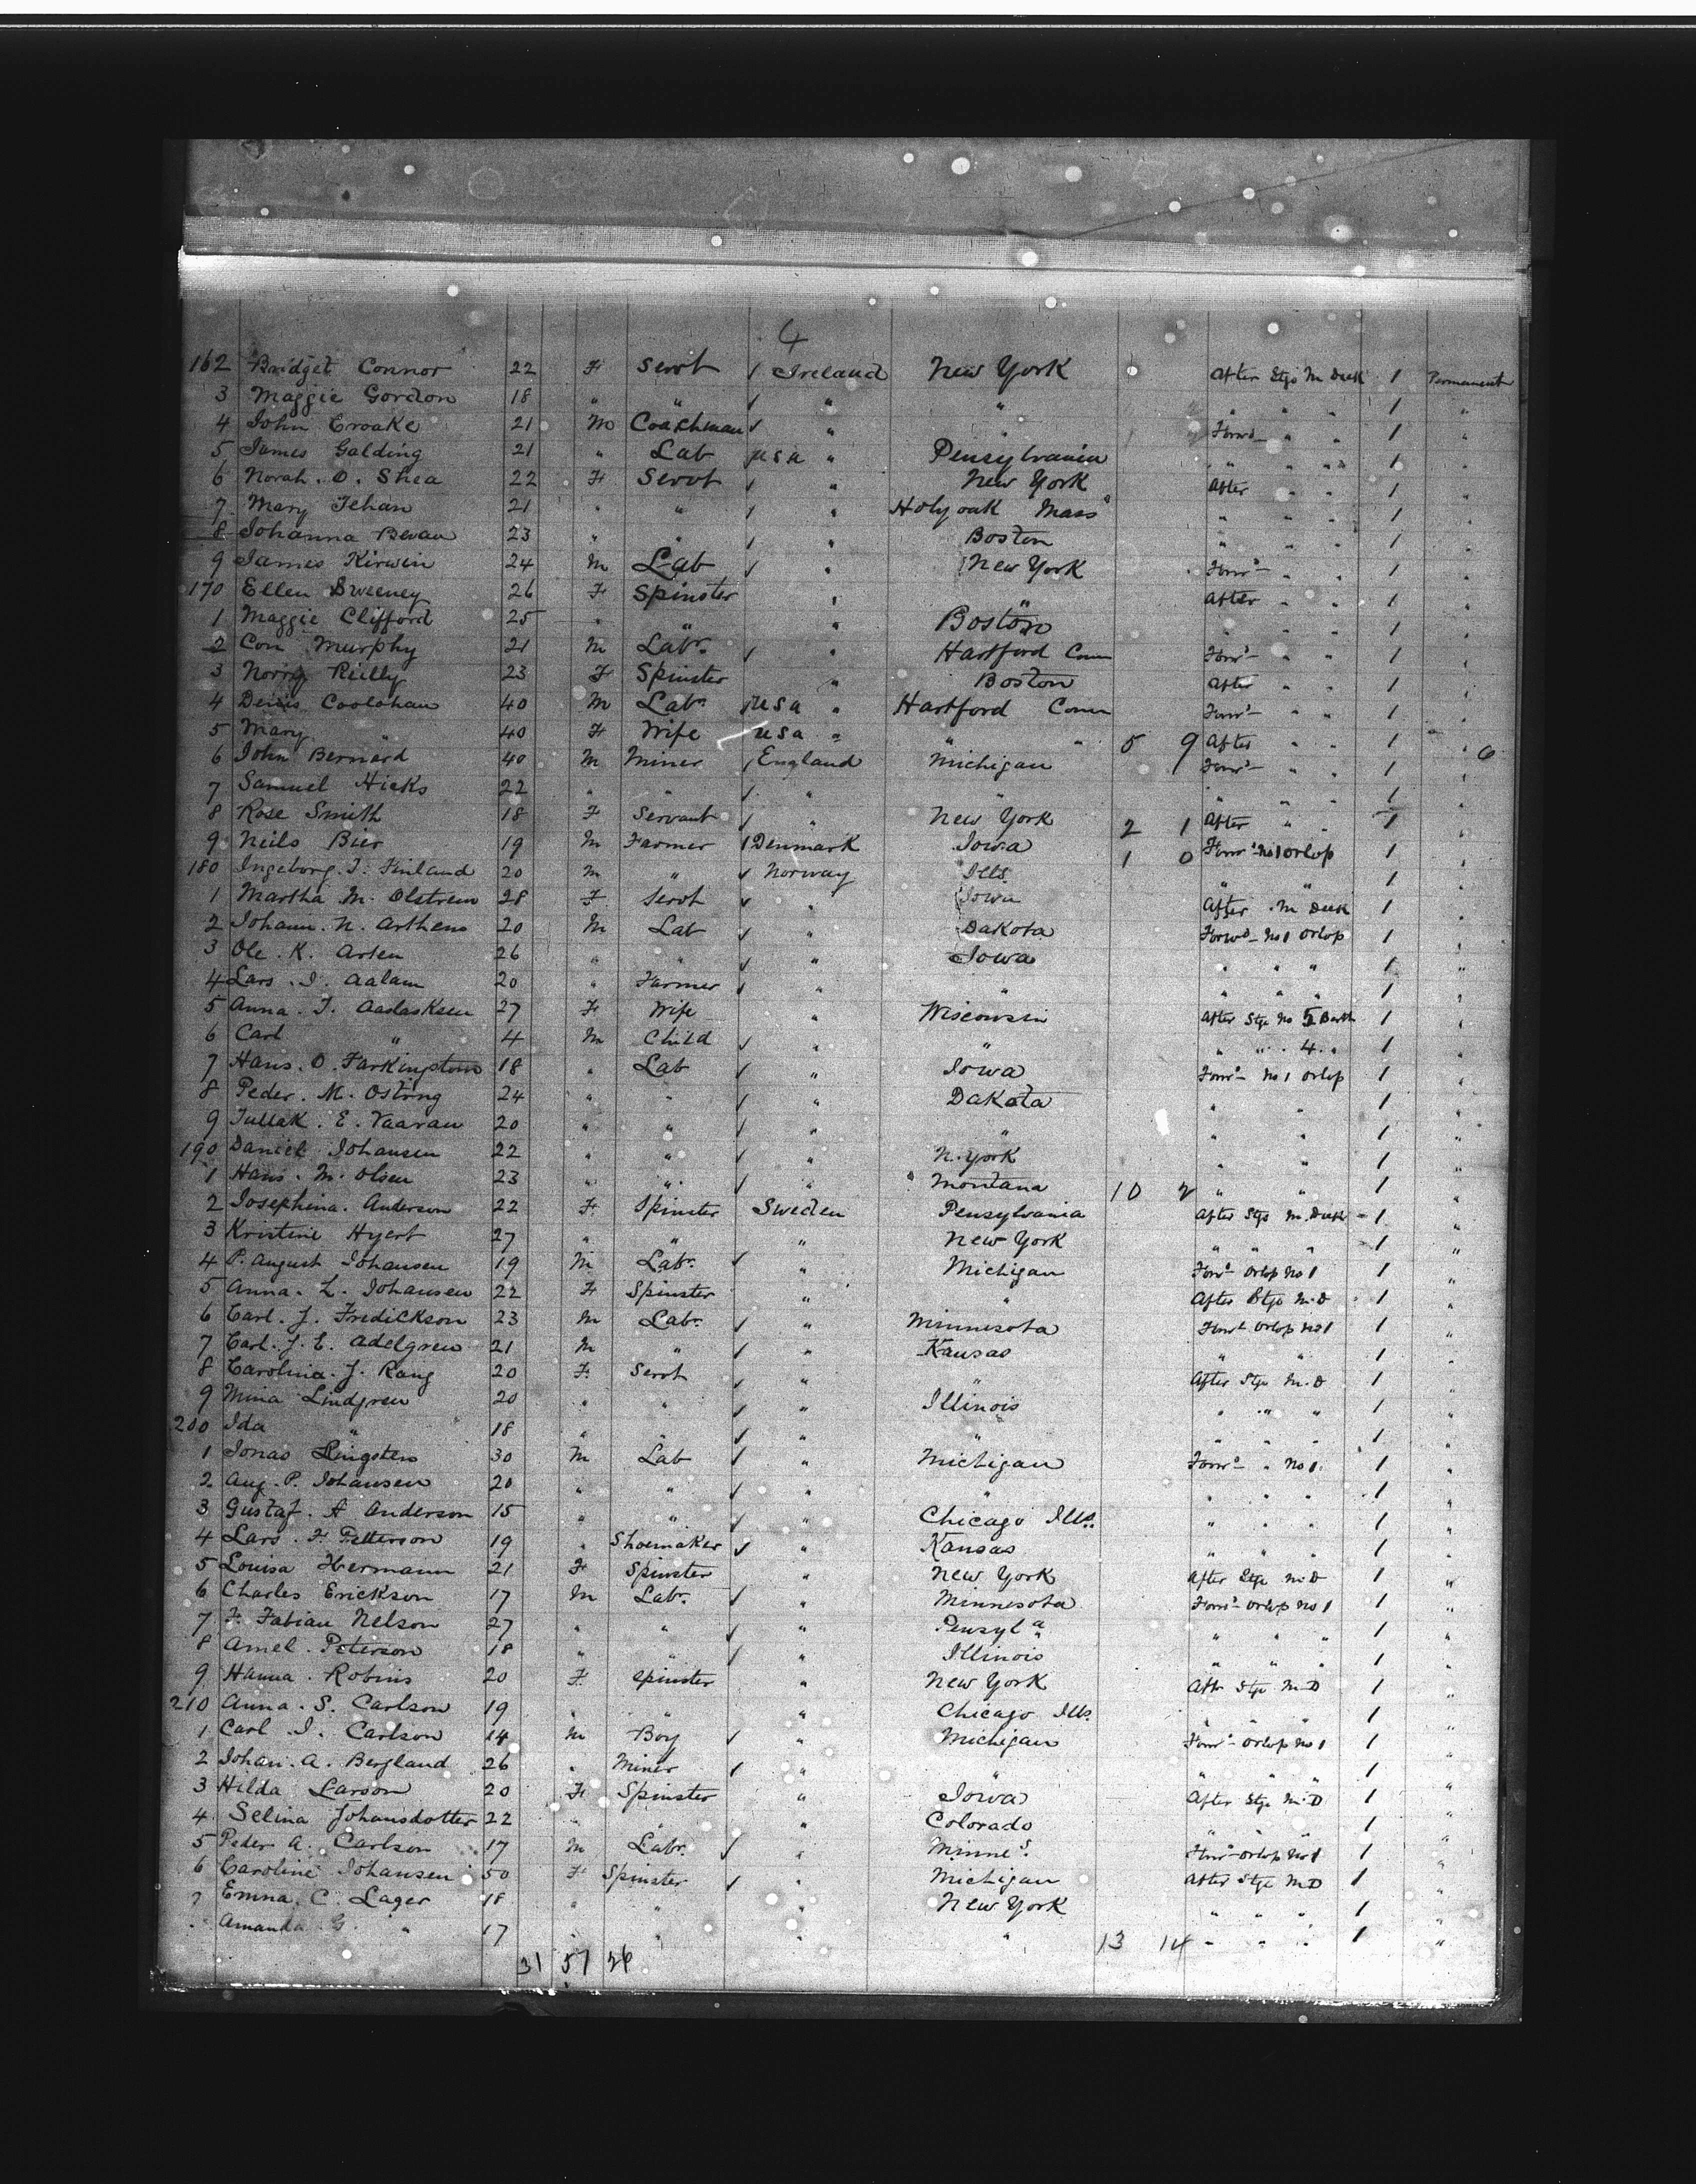 162 Bridget Connor 22 F Servt Ireland New York After Stge M Deck 1 Permanent
3 Maggie Gordon 18 " " " " " " " 1 "
4 John Croake 21 M Coachman " " Forwd " " 1 "
5 James Golding 21 " Lab USA " Pensylvania " " " 1 "
6 Norah. O. Shea 22 F Servt " New York After " " 1 "
7 Mary Tehan 21 " " " Holyoak Mass " " " 1 "
8 Johanna Bevan 23 " " " Boston " " " 1 "
9 James Kirwin 24 M Lab " New York Forwd " " 1 "
170 Ellen Sweeney 26 F Spinster " " After " " 1 "
1 Maggie Clifford 25 " " " Boston " " " 1 "
2 Con Murphy 21 M Labr " Hartford Conn Forwd " " 1 "
3 Reilly 23 F Spinster " Boston After " " 1 "
4 Denis Coolahan 40 M Labr USA " Hartford Conn Forwd " " 1 "
5 Mary " 40 F Wife USA " " " 5 9 After " " 1 " 6
6 John Bernard 40 M Miner England Michigan Forwd " " 1 "
7 Samuel Hicks 22 " " " " " " " 1 "
8 Rose Smith 18 F Servant " New York 2 1 After " " 1 "
9 Neils Bier 19 M Farmer Denmark Iowa 1 0 Forwd No 1 Orlop 1 "
180 Ingeborg. T. Finland 20 M " Norway Ills. " " 1 "
1 Martha M. Olstrem 28 F Servt " Iowa After M Deck 1 "
2 Johann. N. Arthens 20 M Lab " Dakota Forwd No 1 Orlop 1 "
3 Ole. K. Arsen 26 " " " Iowa " " " 1 "
4 Lars. I. Aalam 20 " Farmer " " " " " 1 "
5 Anna. T. Aaslaksen 27 F Wife " Wisconsin After Stge No 5 Berth 1 "
6 Carl " 4 M Child " " " " 4 " 1 "
7 Hans. O. Farkingstown 18 " Lab " Iowa Forwd No 1 Orlop 1 "
8 Peder. M. Ostring 24 " " " Dakota " " 1 "
9 Tullak. E. Vaarau 20 " " " " " " 1 "
190 Daniel Johansen 22 " " " N. York " " 1 "
1 Hans. M. Olsen 23 " " " Montana 10 2 " " 1 "
2 Josephina. Anderson 22 F Spinster Sweden Pensylvania After Stge M. Deck 1 "
3 Kristine Hyert 27 " " " New York " " " 1 "
4 P. August Johansen 19 M Labr " Michigan Forwd Orlop No 1 1 "
5 Anna. L. Johansen 22 F Spinster " " After Stge M.D 1 "
6 Carl. J. Fredickson 23 M Labr " Minnesota Forwd Orlop No 1 1 "
7 Carl. J. E. Adelgren 21 M " " Kansas " " 1 "
8 Carolina. J. Rang 20 F Servt " " After Stge M.D 1 "
9 Mina Lindgren 20 " " " Illinois " " " 1 "
200 Ida " 18 " " " " " " " 1 "
1 Jonas Lingsten 30 M Lab " Michigan Forwd " No 1 1 "
2 Aug. P. Johansen 20 " " " " " " " 1 "
3 Gustaf. A Anderson 15 " " " Chicago Ills. " " " 1 "
4 Lars. F. Petterson 19 " Shoemaker " Kansas " " " 1 "
5 Louisa Hermann 21 F Spinster " New York After Stge M.D 1 "
6 Charles Erickson 17 M Labr " Minnesota Forwd Orlop No 1 1 "
7 F. Fabian Nelson 27 " " " Pensyla " " " 1 "
8 Amel. Peterson 18 " " " Illinois " " " 1 "
9 Hanna. Robins 20 F Spinster " New York Aftr Stge M.D 1 "
210 Anna. S. Carlson 19 " " " Chicago Ills. " " " 1 "
1 Carl. I. Carlson 14 M Boy " Michigan Forwd Orlop No 1 1 "
2 Johan. A. Bergland 26 " Miner " " " " " 1 "
3 Hilda Larson 20 F Spinster " Iowa After Stge M.D 1 "
4 Selina Johansdotter 22 " " " Colorado " " " 1 "
5 Peder A. Carlson 17 M Labr " Minnes. Forwd Orlop No 1 1 "
6 Caroline Johansen 50 F Spinster " Michigan After Stge M.D 1 "
7 Emma. C. Lager 18 " " " New York " " " 1 "
Amanda G. " 17 " " " " 13 14 " " " 1 "
31 57 26